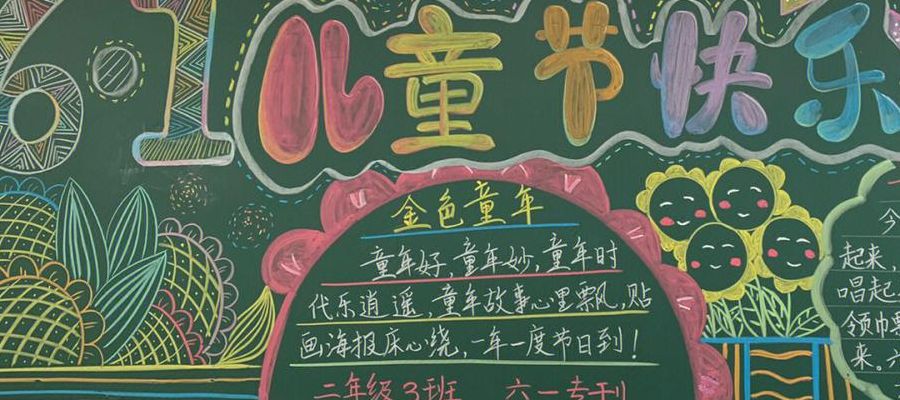 6·1
儿童节快乐
金色童年
童年好,童年妙,童年时
代乐逍遥,童年故事心里飘,贴
画海报床心绕,一年一度节日到!
二年级3班 六一专刊
今
起来,
唱起
领巾
来。六